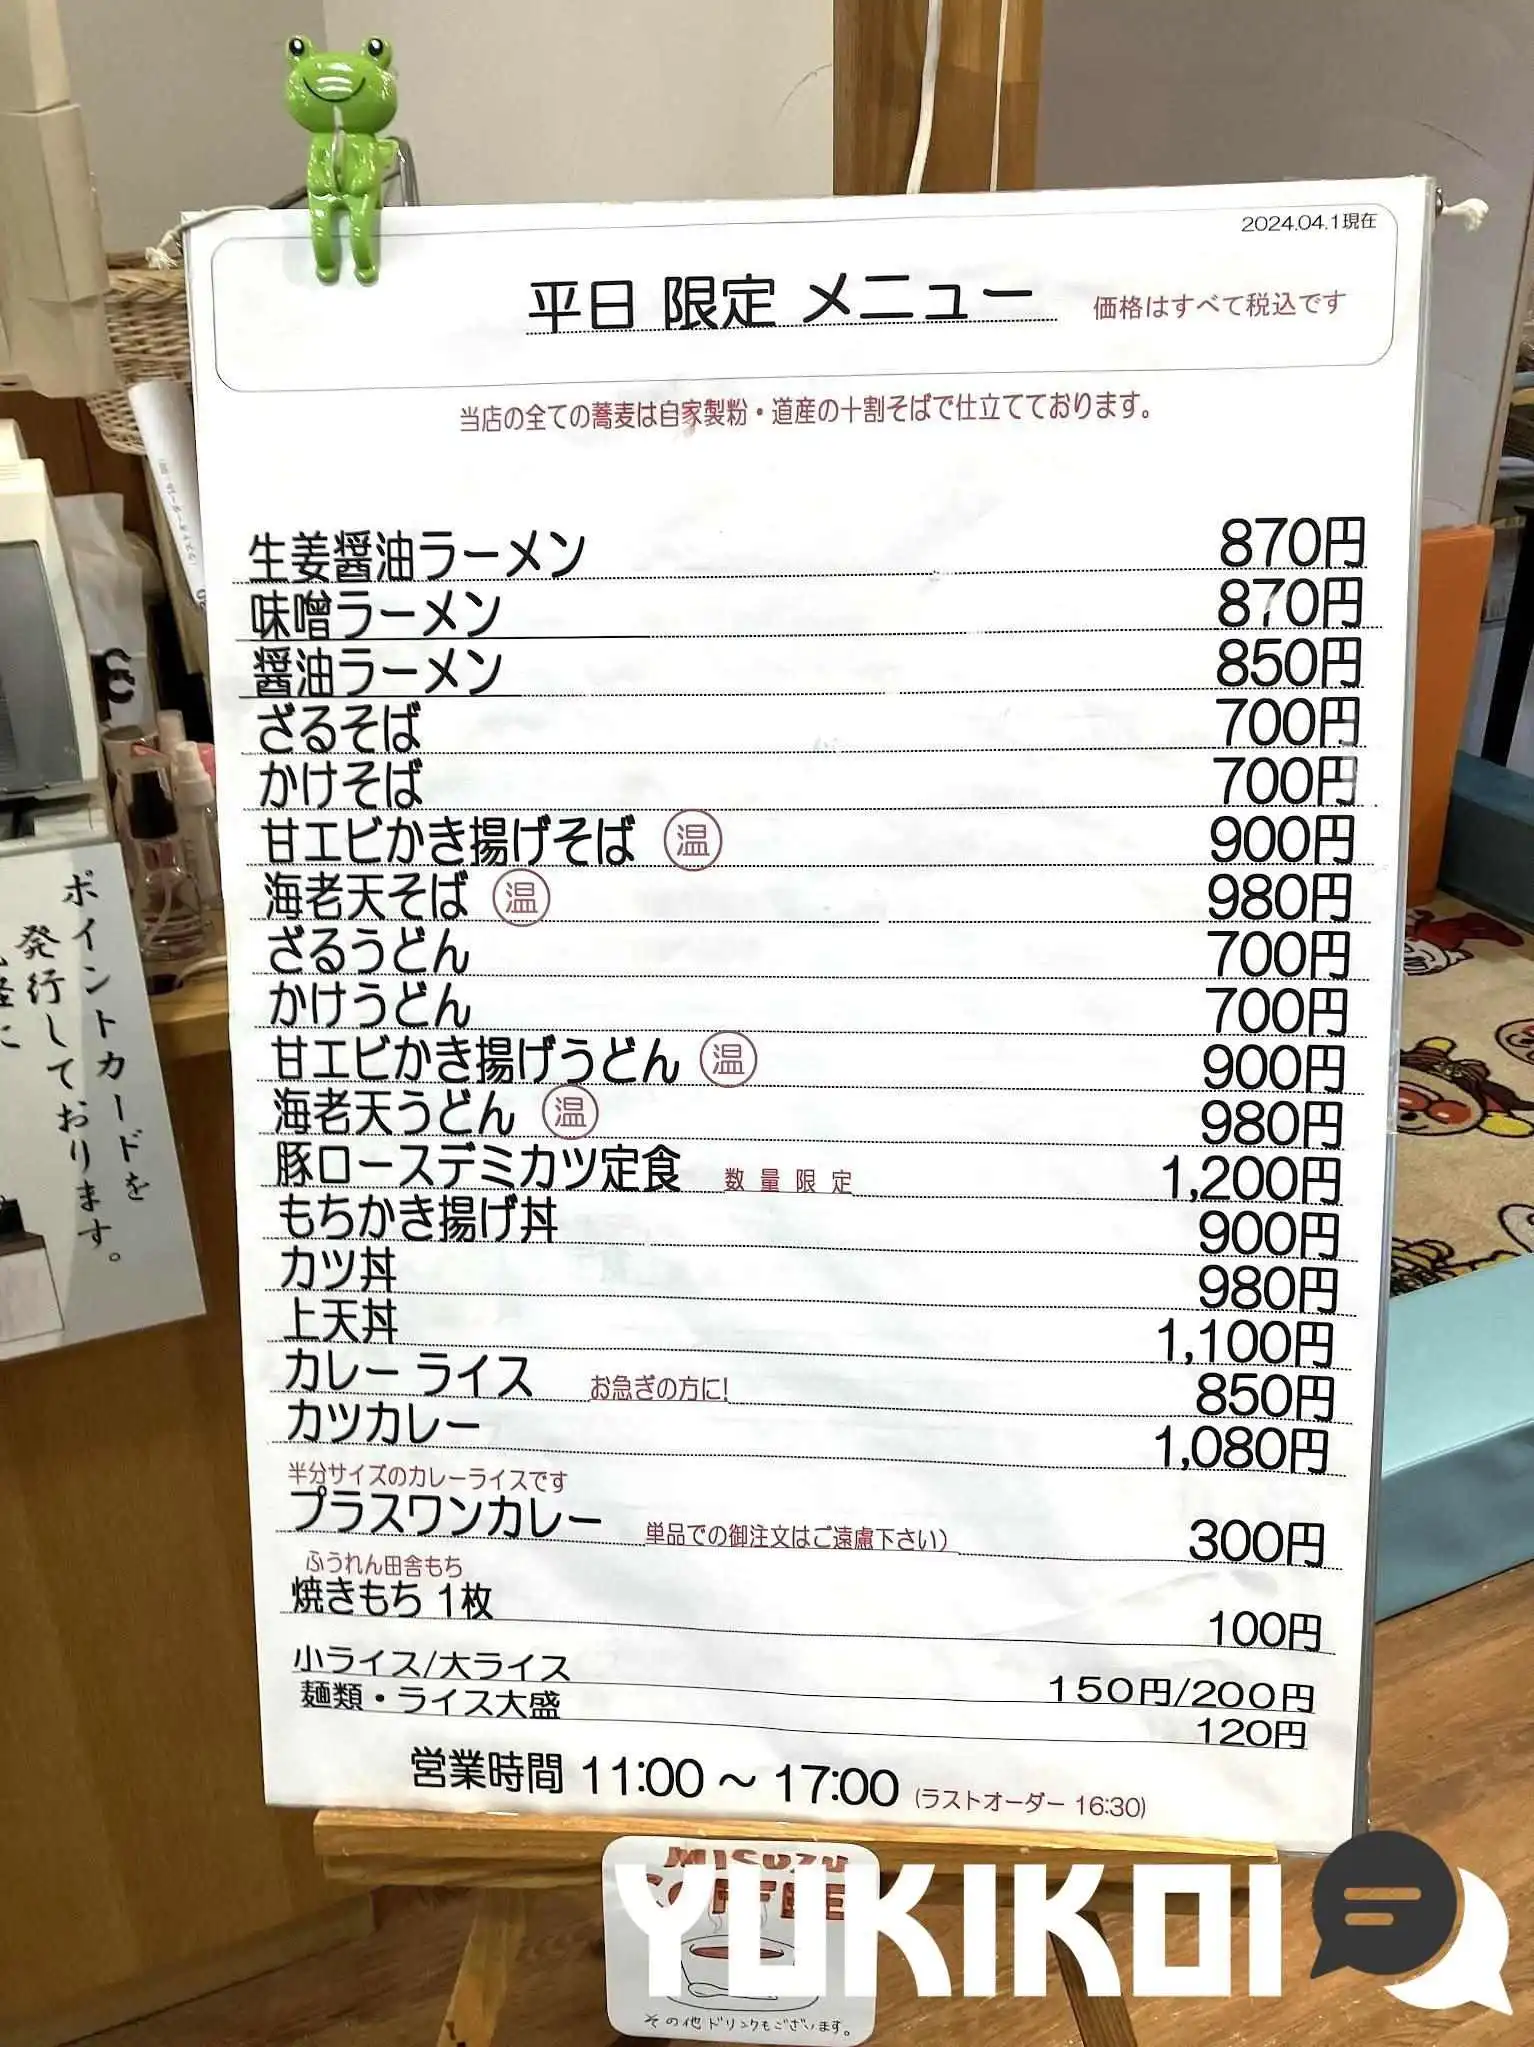 2024.04.1現在
平日 限定 メニュー 価格はすべて税込です
当店の全ての蕎麦は自家製粉・道産の十割そばで仕立てております。
生姜醤油ラーメン 870円
味噌ラーメン 870円
醤油ラーメン 850円
ざるそば 700円
かけそば 700円
甘エビかき揚げそば 温 900円
海老天そば 温 980円
ざるうどん 700円
かけうどん 700円
甘エビかき揚げうどん 温 900円
海老天うどん 温 980円
豚ロースデミカツ定食 数量限定 1,200円
もちかき揚げ丼 900円
カツ丼 980円
上天丼 1,100円
カレー ライス お急ぎの方に! 850円
カツカレー 1,080円
半分サイズのカレーライスです
プラスワンカレー 単品での御注文はご遠慮下さい） 300円
ふうれん田舎もち
焼きもち 1枚 100円
小ライス/大ライス 150円/200円
麺類・ライス大盛 120円
営業時間 11:00 ～ 17:00 (ラストオーダー 16:30)
ポイントカードを
発行しております。
MISUZU
COFFEE
その他ドリンクもございます。
YUKIKOI